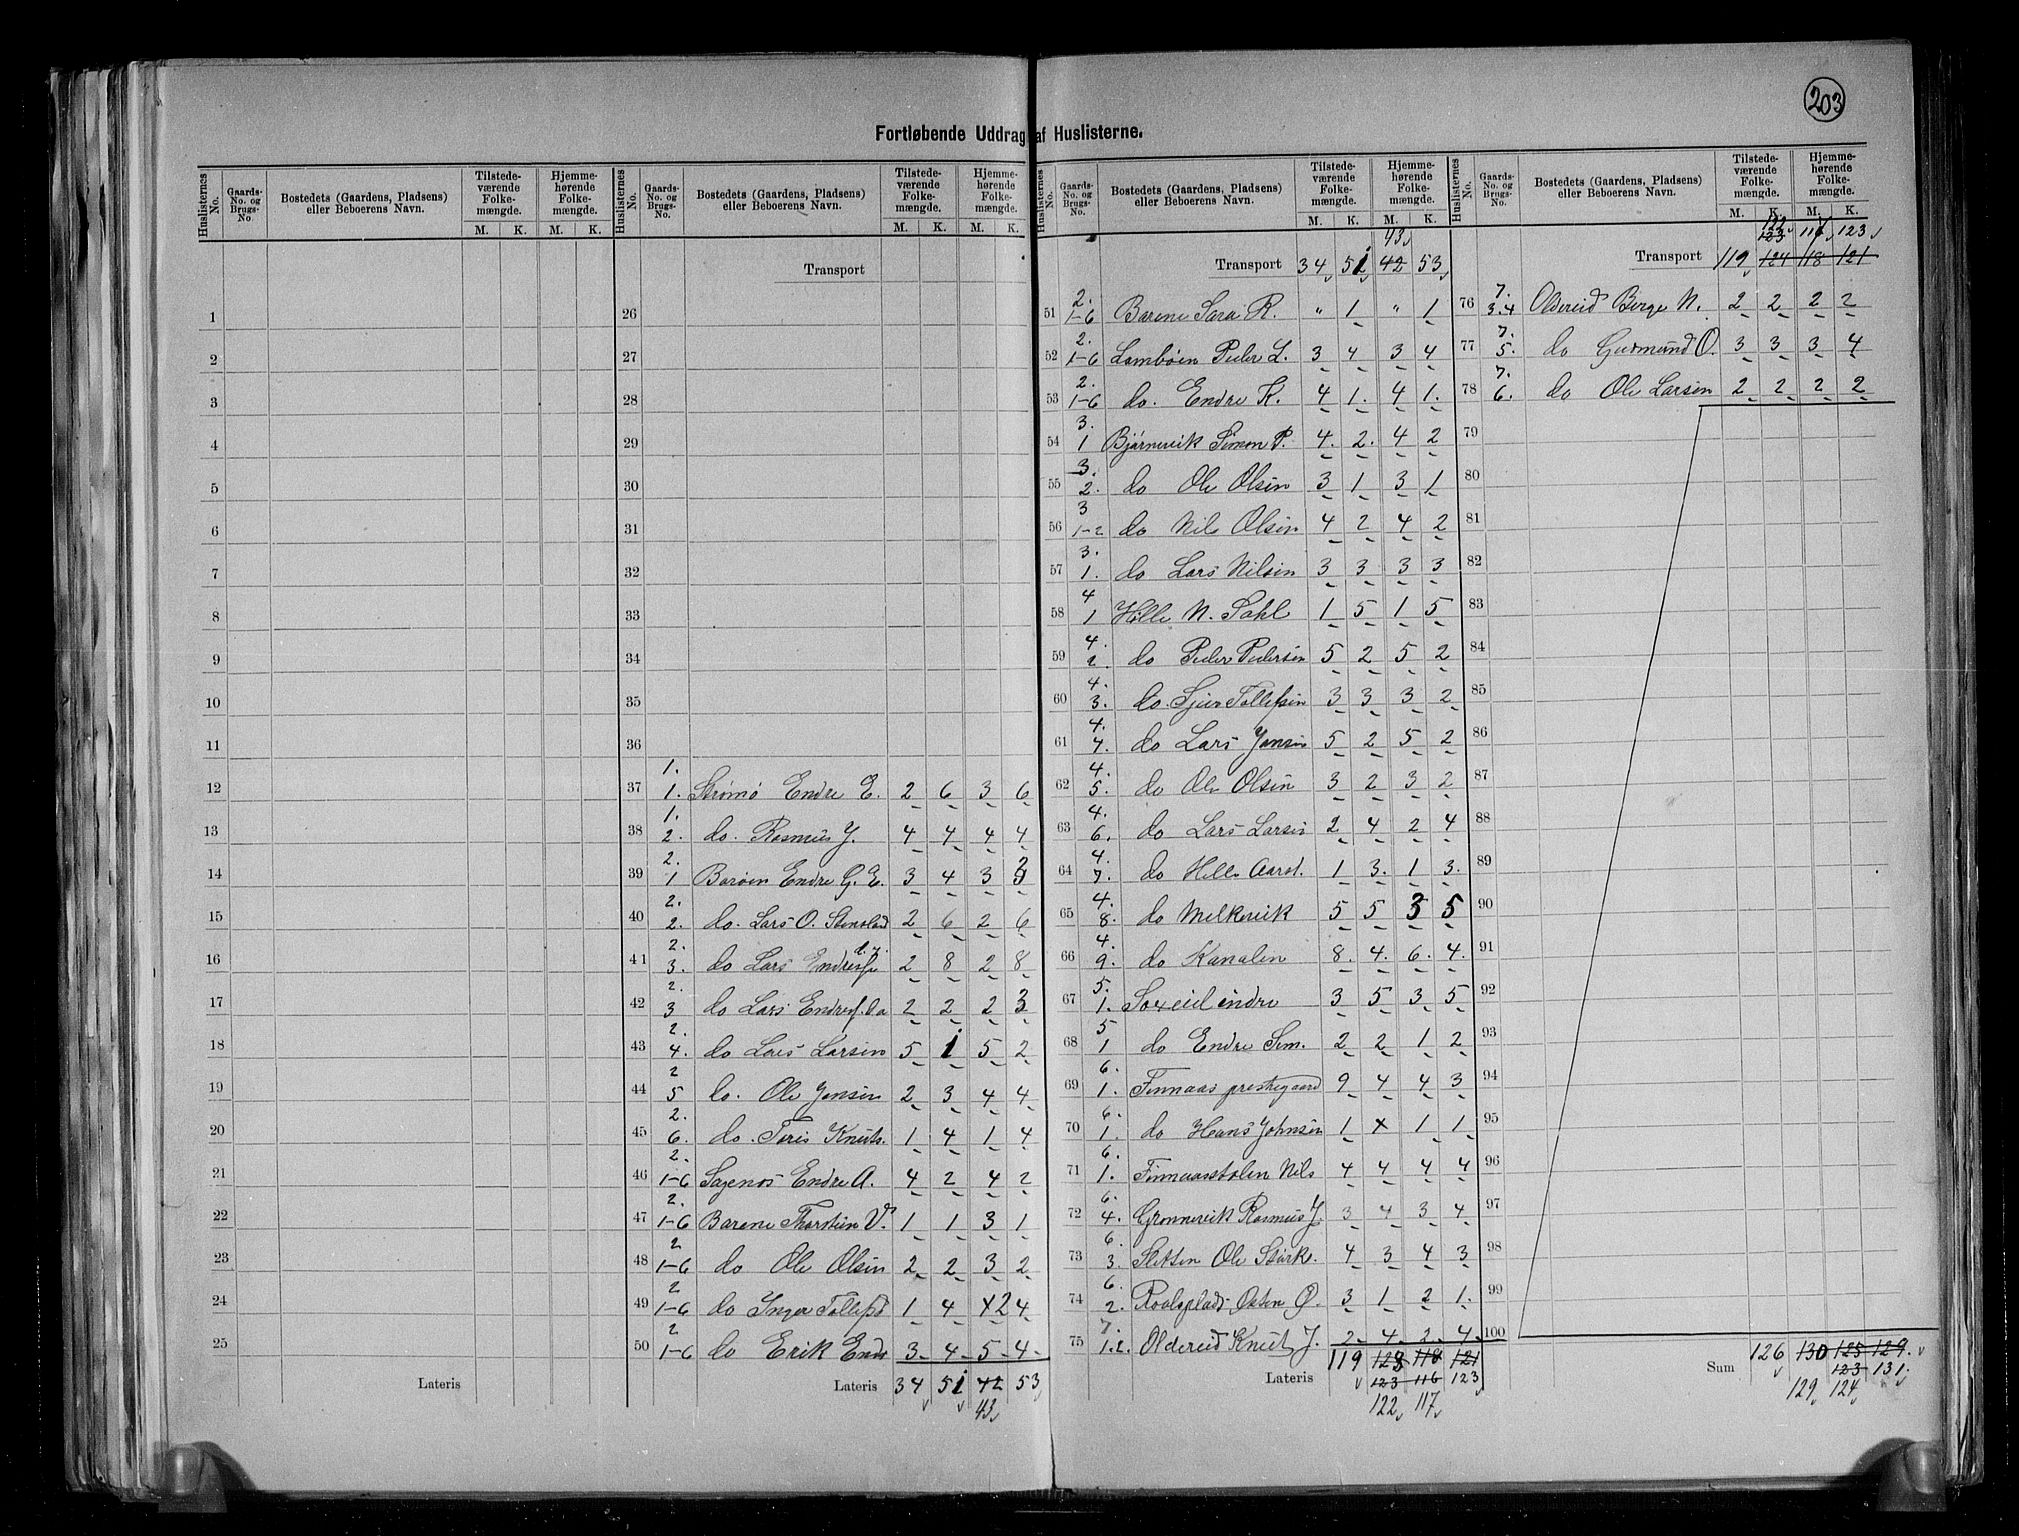 203
Fortløbende Uddrag af Huslisterne.
Huslisternes No. Gaards-No. og Brugs-No. Bostedets (Gaardens, Pladsens) eller Beboerens Navn. Tilstedeværende Folkemængde. M. K. Hjemmehørende Folkemængde. M. K.
1
2
3
4
5
6
7
8
9
10
11
12
13
14
15
16
17
18
19
20
21
22
23
24
25
Lateris
Huslisternes No. Gaards-No. og Brugs-No. Bostedets (Gaardens, Pladsens) eller Beboerens Navn. Tilstedeværende Folkemængde. M. K. Hjemmehørende Folkemængde. M. K.
Transport
26
27
28
29
30
31
32
33
34
35
36
37 1. 1. Strømø Endre E. 2 6 3 6
38 1. 2. do. Rasmus J. 4 4 4 4
39 2. 1 Barøen Endre G. E. 3 4 3 3
40 2. 2. do. Lars O. Stensland 2 6 2 6
41 2. 3. do Lars Endres 2 8 2 8
42 2. 3 do Lars Endres 2 2 2 3
43 2. 4. do Lars Larsen 5 1 5 2
44 2 5 do. Ole Jansen 2 3 4 4
45 2. 6. do. Knuts. 1 4 1 4
46 2. 1-6 Sagenos Endre A. 4 2 4 2
47 2. 1-6 Barene Thorstein 1 1 3 1
48 2 1-6 do Ole Olsen 2 2 3 2
49 2 1-6 do Inger 1 4 2 4
50 2 1-6 do Erik Ends 3 4 5 4
Lateris 34 51 42 53
43
Huslisternes No. Gaards-No. og Brugs-No. Bostedets (Gaardens, Pladsens) eller Beboerens Navn. Tilstedeværende Folkemængde. M. K. Hjemmehørende Folkemængde. M. K.
43
Transport 34 51 42 53
51 2. 1-6 Barene Sara R. " 1 " 1
52 2. 1-6 Lambøen Peder L. 3 4 3 4
53 2. 1-6 do. Endre K. 4 1. 4 1.
54 3. 1 Bjørnevik Simon P. 4. 2. 4 2
55 3. 2. do Ole Olsen 3 1 3 1
56 3 1-2 do Nils Olsen 4 2 4 2
57 3. 1. do Lars Nilsen 3 3 3 3
58 4 1 Hille N. Dahl 1 5 1 5
59 4. 2. do Peder Pedersen 5 2 5 2
60 4. 3. do. Sjur Tollefsen 3 3 3 2
61 4. 4. do Lars Jansen 5 2 5 2
62 4. 5. do Ole Olsen 3 2 3 2
63 4. 6. do Lars Larsen 2 4 2 4
64 4. 7. do Hille 1 3. 1 3.
65 4. 8. do Melkevik 5 5 3 5
66 4. 9. do Kanalen 8. 4. 6. 4.
67 5. 1. endre 3 5 3 5
68 5 1 do Endre Sim. 2 2 1 2
69 6. 1. Finnaas prestegaard 9 4 4 3
70 6. 1. do Hans Johnsen 1 x 1 1
71 6. 1. Finnaasstølen Nils 4 4 4 4
72 6. 4. Grønnevik Rasmus J. 3 4 3 4
73 6. 3. Sletten Ole Stark. 4 3 4 3
74 6. 2. Østen Ø. 3 1 2 1.
75 7. 1.2. Oldereid Knut J. 2 4 2 4
119 123 118 121
Lateris 123 116 123
122 117
Huslisternes No. Gaards-No. og Brugs-No. Bostedets (Gaardens, Pladsens) eller Beboerens Navn. Tilstedeværende Folkemængde. M. K. Hjemmehørende Folkemængde. M. K.
122
123 117 123
Transport 119 124 118 121
76 7. 3.4 Oldereid Berge N. 2 2 2 2
77 7. 5. do Gudmund O. 3 3 3 4
78 7. 6. do Ole Larsen 2 2 2 2
79
80
81
82
83
84
85
86
87
88
89
90
91
92
93
94
95
96
97
98
99
100
Sum 126 130 125 129.
123 131.
129 124